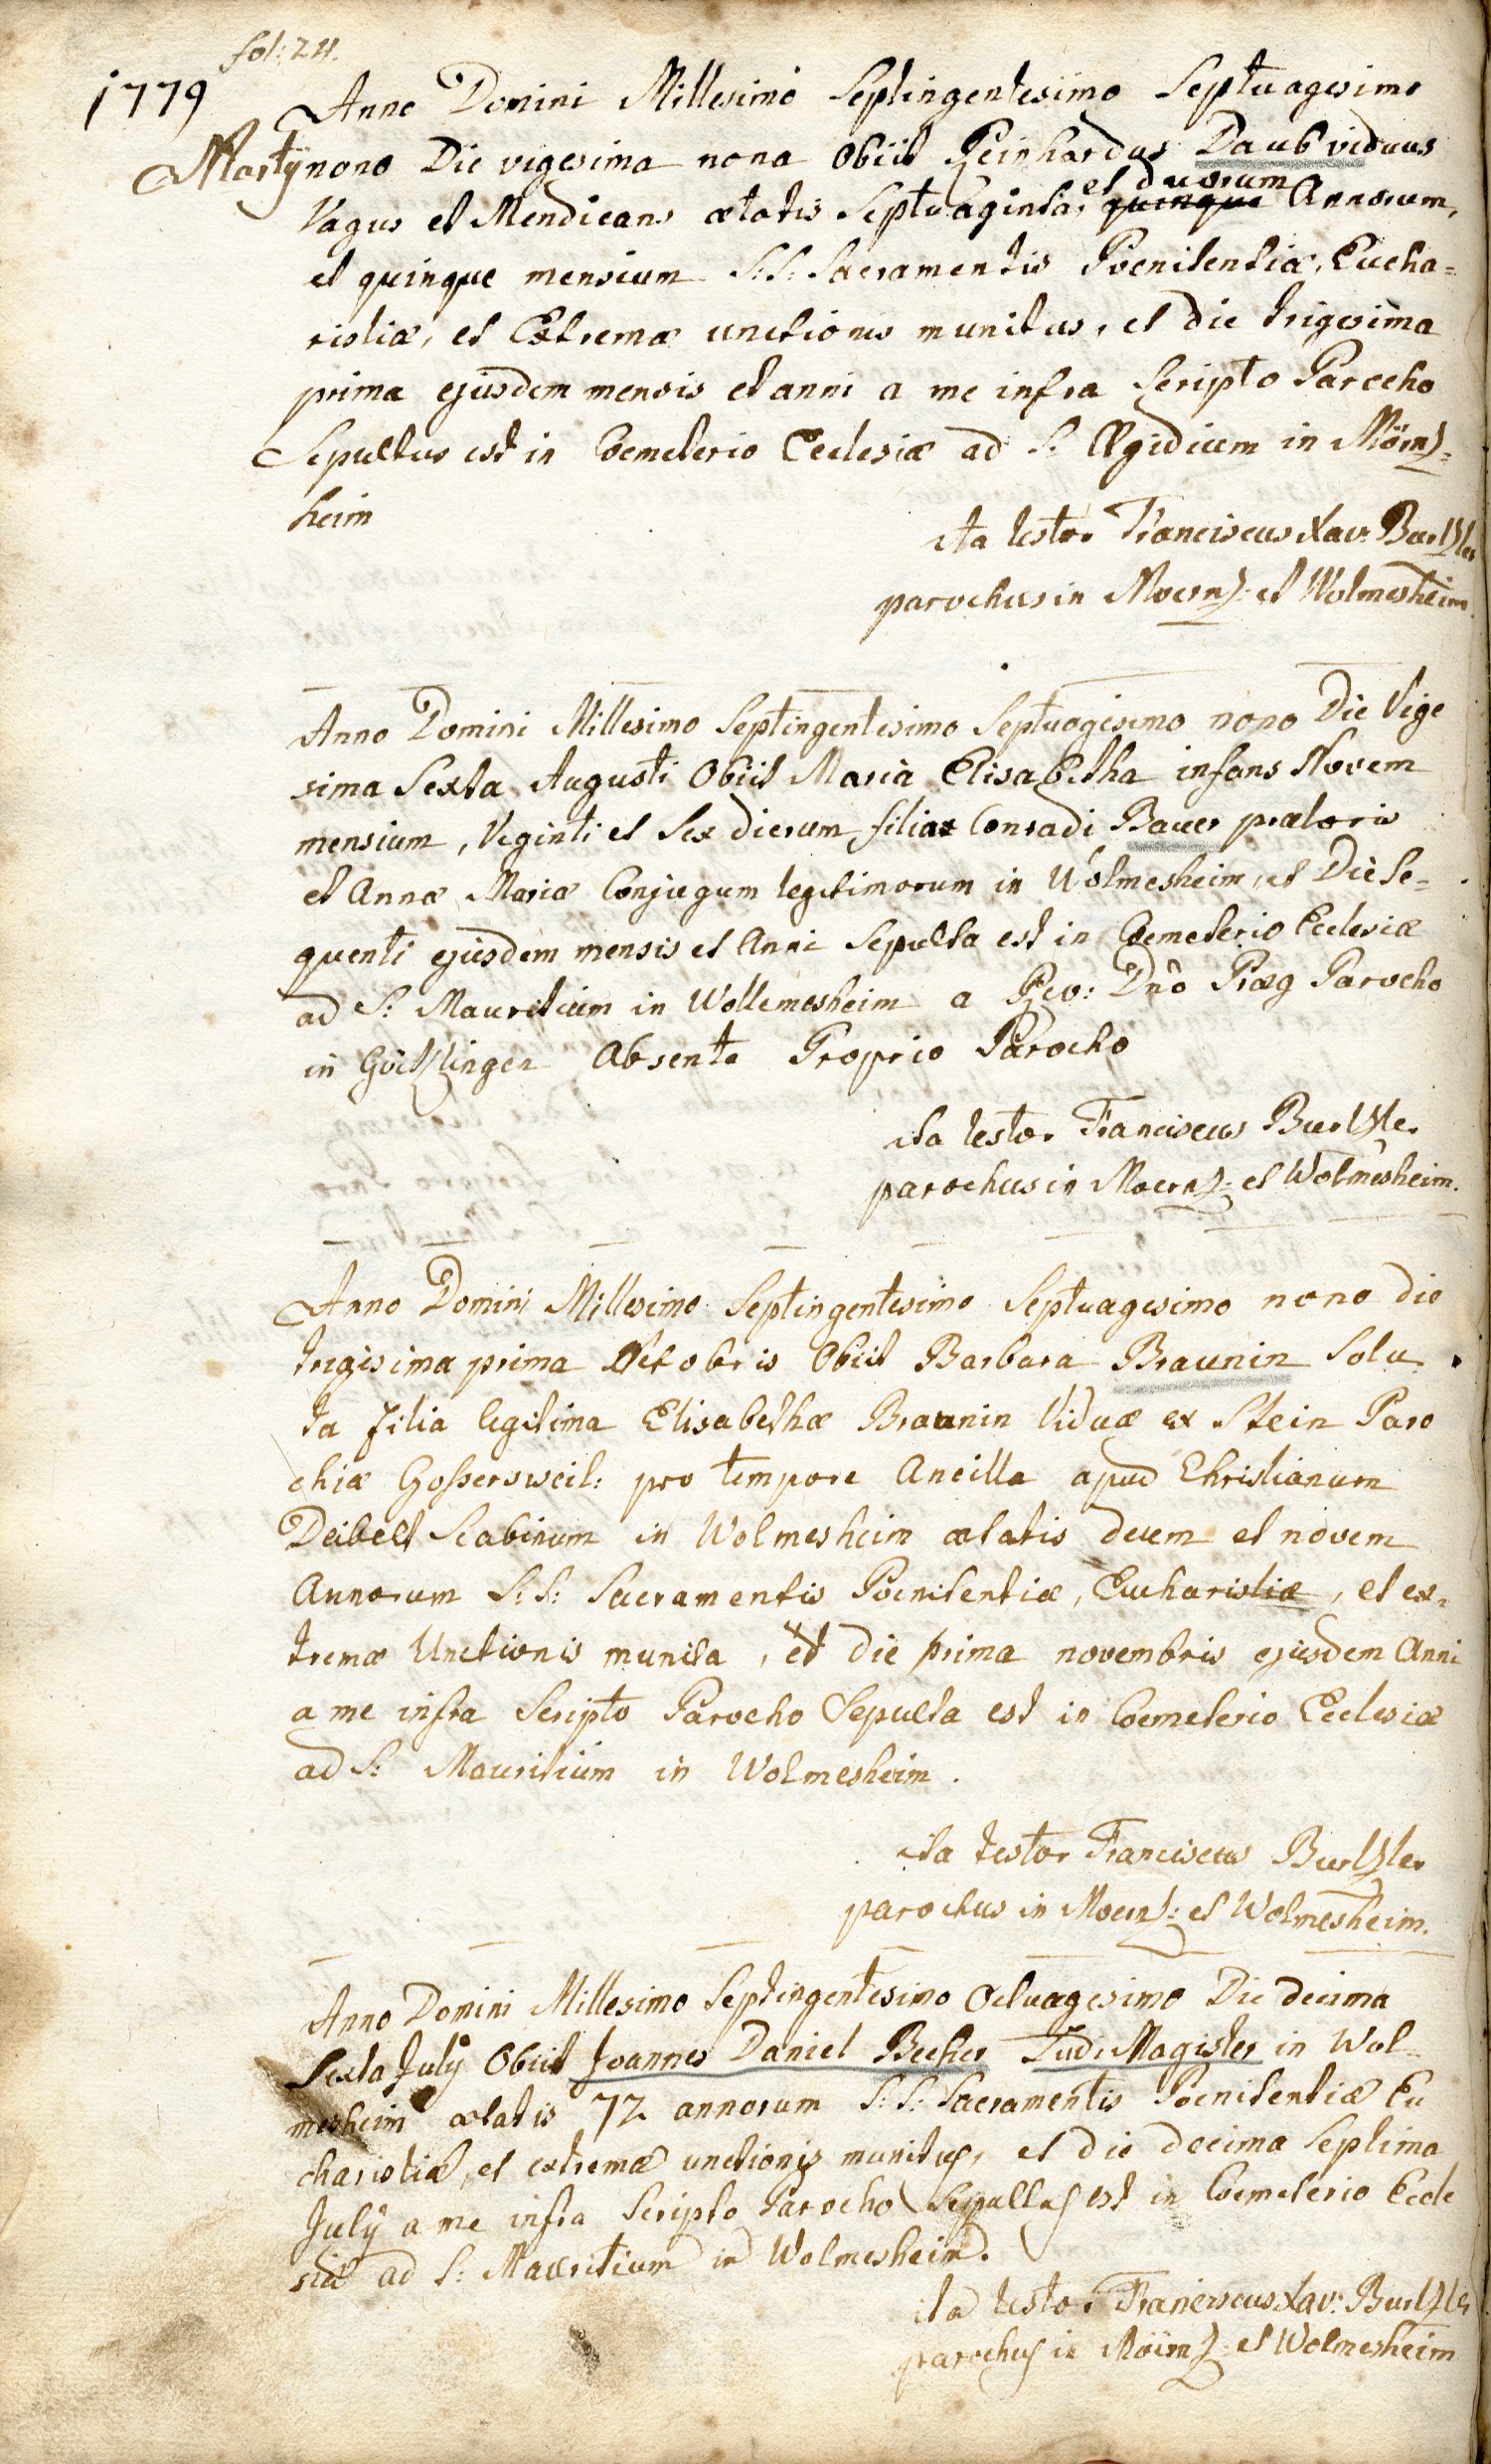 fol: 24.
1779
Anno Domini Millesimo Septingentesimo Septuagesimo
Martÿ nono Die vigesima nona Obiit Reinhardus Daub viduus
et duorum
Vagus et Mendicans ætatis Septuaginta, quinque Annorum,
et quinque mensium S:S: Sacramentis Poenitentiæ, Eucha=
ristiæ, et Extremæ unctionis munitus, et die trigesima
prima ejusdem mensis et anni a me infra Scripto Parocho
Sepultus est in Coemeterio Ecclesiæ ad S: Ægidium in Mörz=
heim
ita testor Franciscus Xav: Burtzler
parochus in Moerz: et Wolmesheim
Anno Domini Millesimo Septingentesimo Septuagesimo nono Die Vige
sima Sexta Augusti Obiit Maria Elisabetha infans Novem
mensium, Viginti et Sex dierum filia Conradi Bauer prætoris
et Annæ Mariæ Conjugum legitimorum in Wolmesheim, et Die Se=
quenti ejusdem mensis et Anni Sepulta est in Coemeterio Ecclesiæ
ad S: Mauritium in Wollemesheim a Rev: Dno Præg Parocho
in Göcklingen Absente Proprio Parocho
ita testor Franciscus Burtzler
parochus in Moerz: et Wolmesheim.
Anno Domini Millesimo Septingentesimo Septuagesimo nono die
trigisima prima Octobris Obiit Barbara Braunin Solu=
ta filia legitima Elisabethæ Braunin Viduæ ex Stein Paro
chiæ Gossersweil: pro tempore Ancilla apud Christianum
Deibelt Scabinum in Wolmesheim ætatis decem et novem
Annorum S:S: Sacramentis Poenitentiæ, Eucharistiæ, et ex=
tremæ Unctionis munita, et die prima novembris ejusdem Anni
a me infra Scripto Parocho Sepulta est in Coemeterio Ecclesiæ
ad S: Mauritium in Wolmesheim.
ita testor Franciscus Burtzler
parochus in Moerz: et Wolmesheim.
Anno Domini Millesimo Septingentesimo Octuagesimo Die decima
Sexta Julÿ Obiit Joannes Daniel Becher Ludi Magister in Wol=
mesheim ætatis 72 annorum S:S: Sacramentis Poenitentiæ Eu
charistiæ, et extremæ unctionis munitus, et die decima Septima
Julÿ a me infra Scripto Parocho Sepultus est in Coemeterio Eccle
siæ ad S: Mauritium in Wolmesheim.
ita testor Franciscus Xav: Burtzler
parochus in Mörz: et Wolmesheim